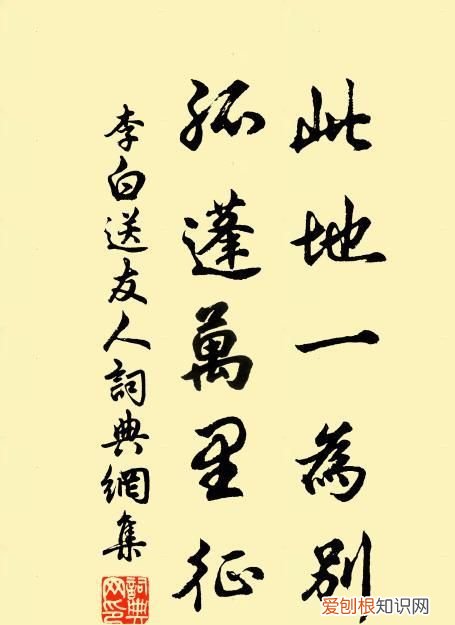 此地一為別
孤蓬萬里征
李白送友人詞典網集
詞典網印
爱刨根知识网